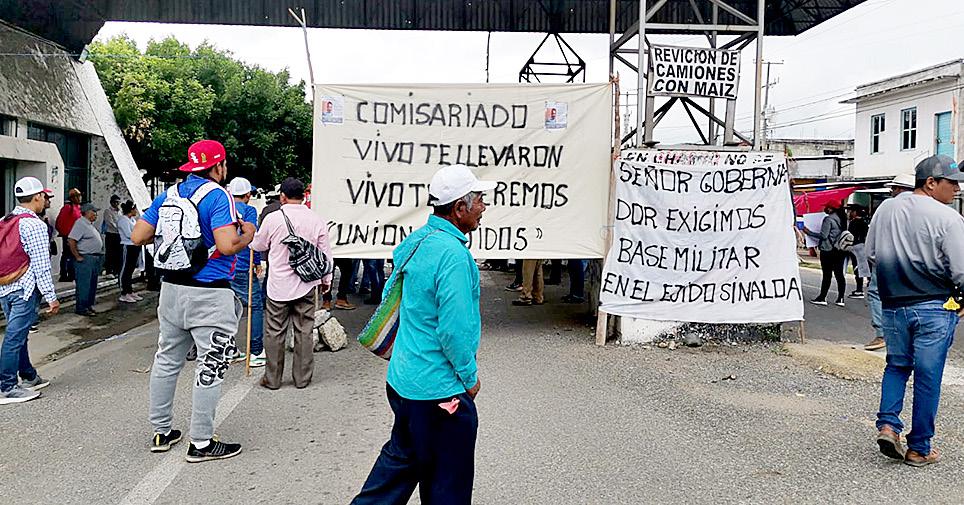 REVICION DE
CAMIONES
CON MAIZ
COMISARIADO
VIVO TE LLEVARON
VIVO TE REMOS
"UNION DOS"
SEÑOR GOBERNA
DOR EXIGIMOS
BASE MILITAR
EN EL EJIDO SINALOA